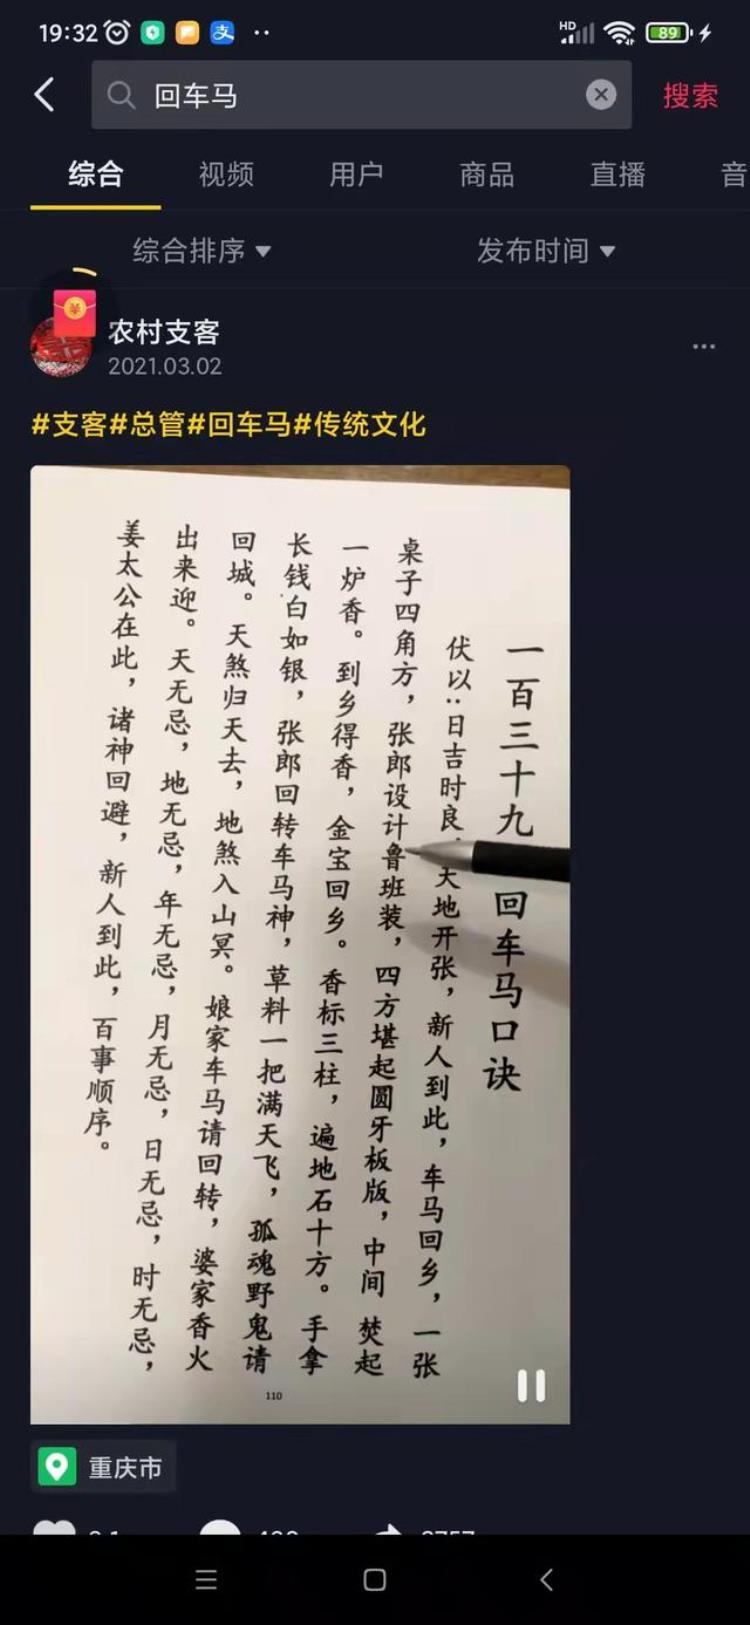 19:32
HD
89
回车马
搜索
综合
视频
用户
商品
直播
音
综合排序
发布时间
农村支客
2021.03.02
#支客#总管#回车马#传统文化
一百三十九 回车马口诀
伏以:日吉时良，天地开张，新人到此，车马回乡，一张
桌子四角方，张郎设计鲁班装，四方堪起圆牙板版，中间 焚起
一炉香。到乡得香，金宝回乡。香标三柱，遍地石十方。手拿
长钱白如银，张郎回转车马神，草料一把满天飞，孤魂野鬼请
回城。天煞归天去，地煞入山冥。娘家车马请回转，婆家香火
出来迎。天无忌，地无忌，年无忌，月无忌，日无忌，时无忌，
姜太公在此，诸神回避，新人到此，百事顺序。
110
重庆市